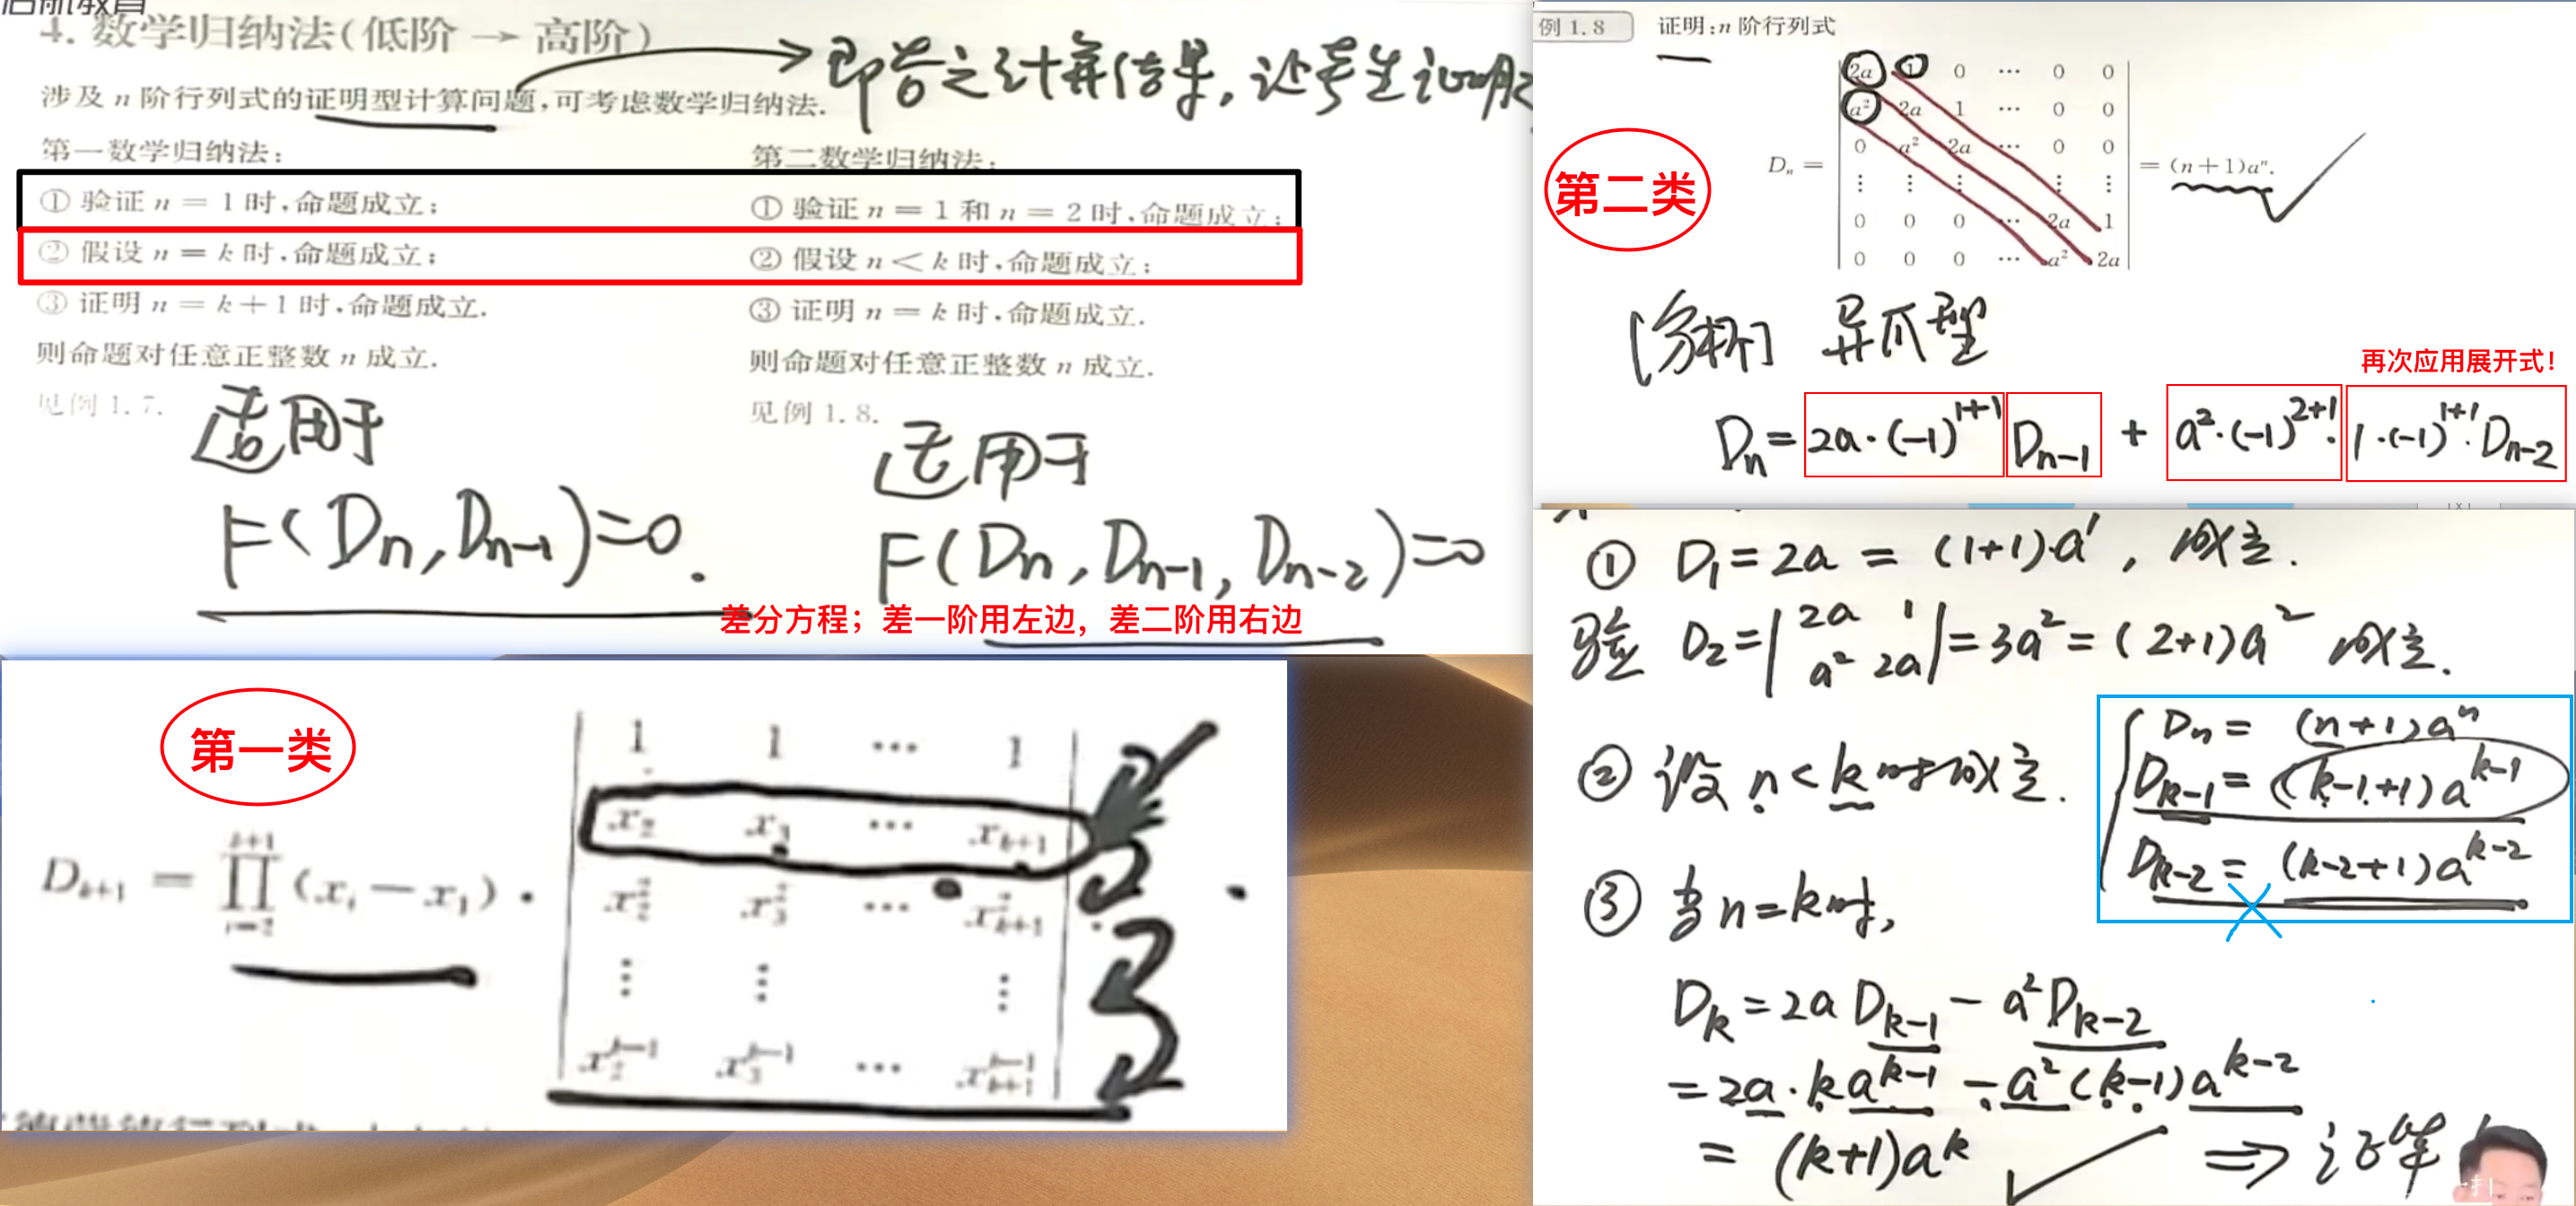 4. 数学归纳法(低阶 → 高阶)
即告之计算结果,让考生证明之
涉及 n 阶行列式的证明型计算问题,可考虑数学归纳法.
第一数学归纳法:
① 验证 n = 1 时,命题成立;
② 假设 n = k 时,命题成立;
③ 证明 n = k + 1 时,命题成立.
则命题对任意正整数 n 成立.
见例 1.7.
适用于
F(Dn, Dn-1)=0.
第二数学归纳法:
① 验证 n = 1 和 n = 2 时,命题成立;
② 假设 n < k 时,命题成立;
③ 证明 n = k 时,命题成立.
则命题对任意正整数 n 成立.
见例 1.8.
适用于
F(Dn, Dn-1, Dn-2)=0
差分方程；差一阶用左边，差二阶用右边
第一类
1 1 ⋯ 1
x₂ x₃ ⋯ xₖ₊₁
Dₖ₊₁ = ∏ (xᵢ − x₁) ·
k+1
i=2
x₂² x₃² ⋯ x²ₖ₊₁
⋮ ⋮ ⋮
x₂ᵏ⁻¹ x₃ᵏ⁻¹ ⋯ xₖ₊₁ᵏ⁻¹
例 1.8 证明:n 阶行列式
2a 1 0 ⋯ 0 0
a² 2a 1 ⋯ 0 0
0 a² 2a ⋯ 0 0
Dₙ = ⋮ ⋮ ⋮ ⋮ ⋮ = (n+1)aⁿ.
0 0 0 ⋯ 2a 1
0 0 0 ⋯ a² 2a
第二类
[分析] 异爪型
再次应用展开式！
Dn = 2a·(-1)¹⁺¹ Dn-1 + a²·(-1)²⁺¹· 1·(-1)¹⁺¹· Dn-2
① D₁ = 2a = (1+1)·a¹, 成立.
验 D₂ = | 2a 1 a² 2a | = 3a² = (2+1)a² 成立.
② 设 n < k 时成立.
Dn = (n+1)aⁿ
Dk-1 = (k-1+1)aᵏ⁻¹
Dk-2 = (k-2+1)aᵏ⁻²
③ 当 n=k时,
Dk = 2a Dk-1 − a² Dk-2
= 2a·k aᵏ⁻¹ − a²(k-1)aᵏ⁻²
= (k+1)aᵏ ⇒ 证毕